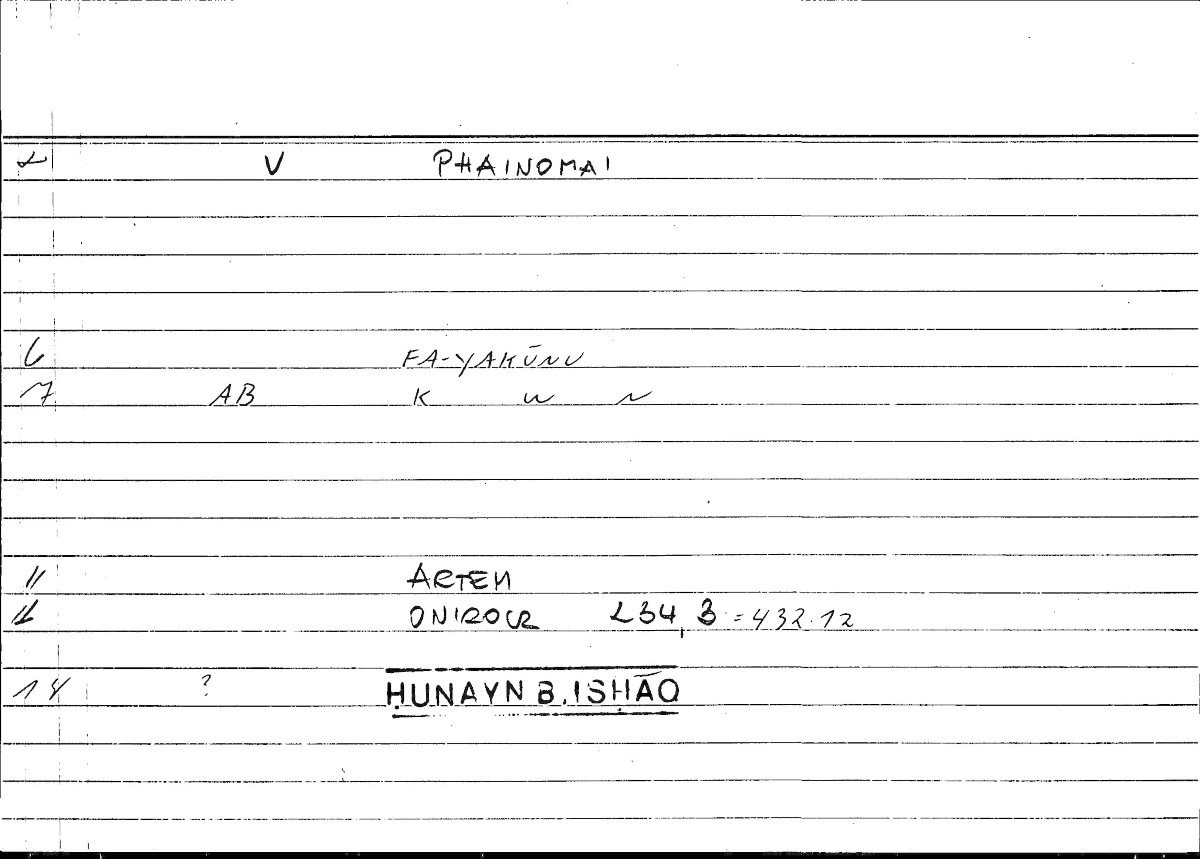 2 V PHAINOMAI
6 FA-YAKŪNU
7 AB K W N
11 ARTEM
12 ONIROCR 234,3 = 432.12
14 ? ḤUNAYN B. ISḤĀQ